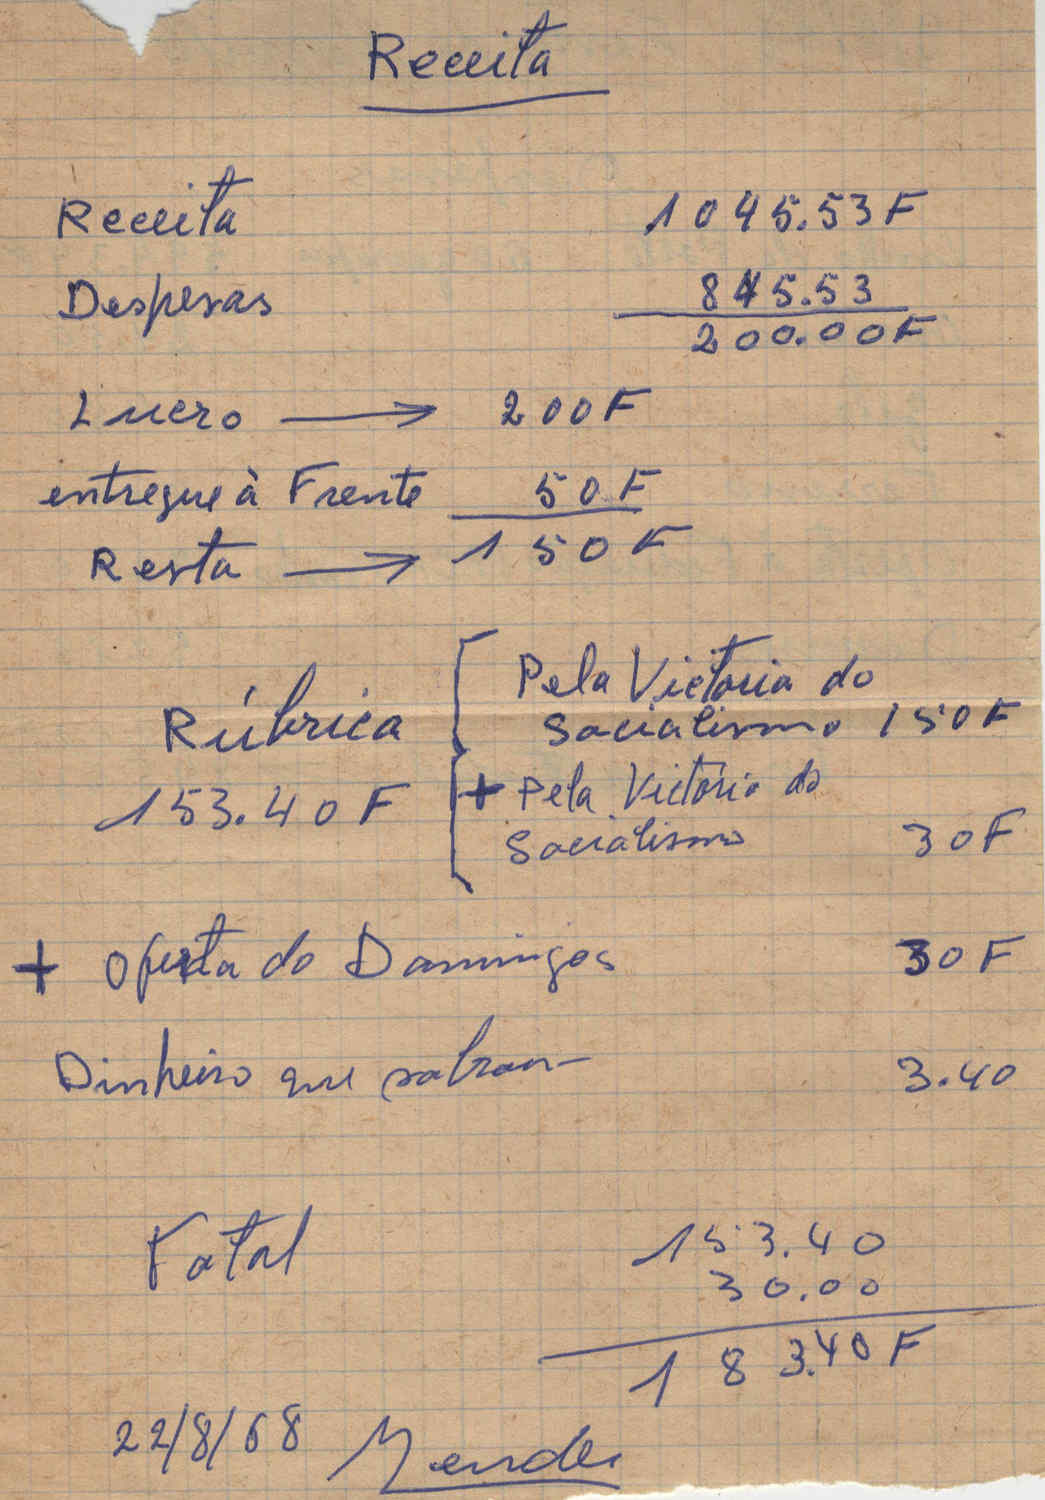 Receita
Receita 1045.53F
Despesas 845.53
200.00F
Lucro → 200F
entregue à Frente 50F
Resta → 150F
Rúbrica
153.40F
Pela Victoria do
Socialismo 150F
+ Pela Victória do
Socialismo 30F
+ Oferta do Domingos 30F
Dinheiro que sobrou 3.40
Total 153.40
30.00
183.40F
22/8/68 Mendes